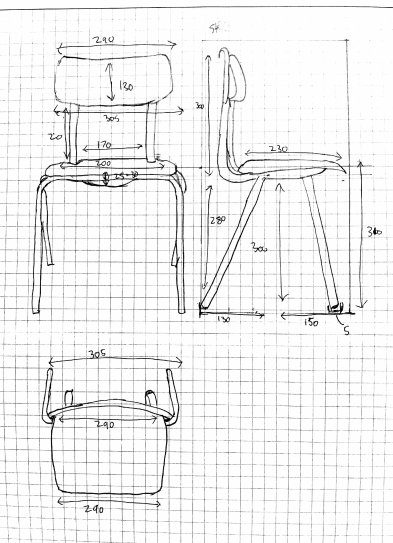 290
130
305
20
170
200
25
300
230
280
300
130
150
5
305
290
290